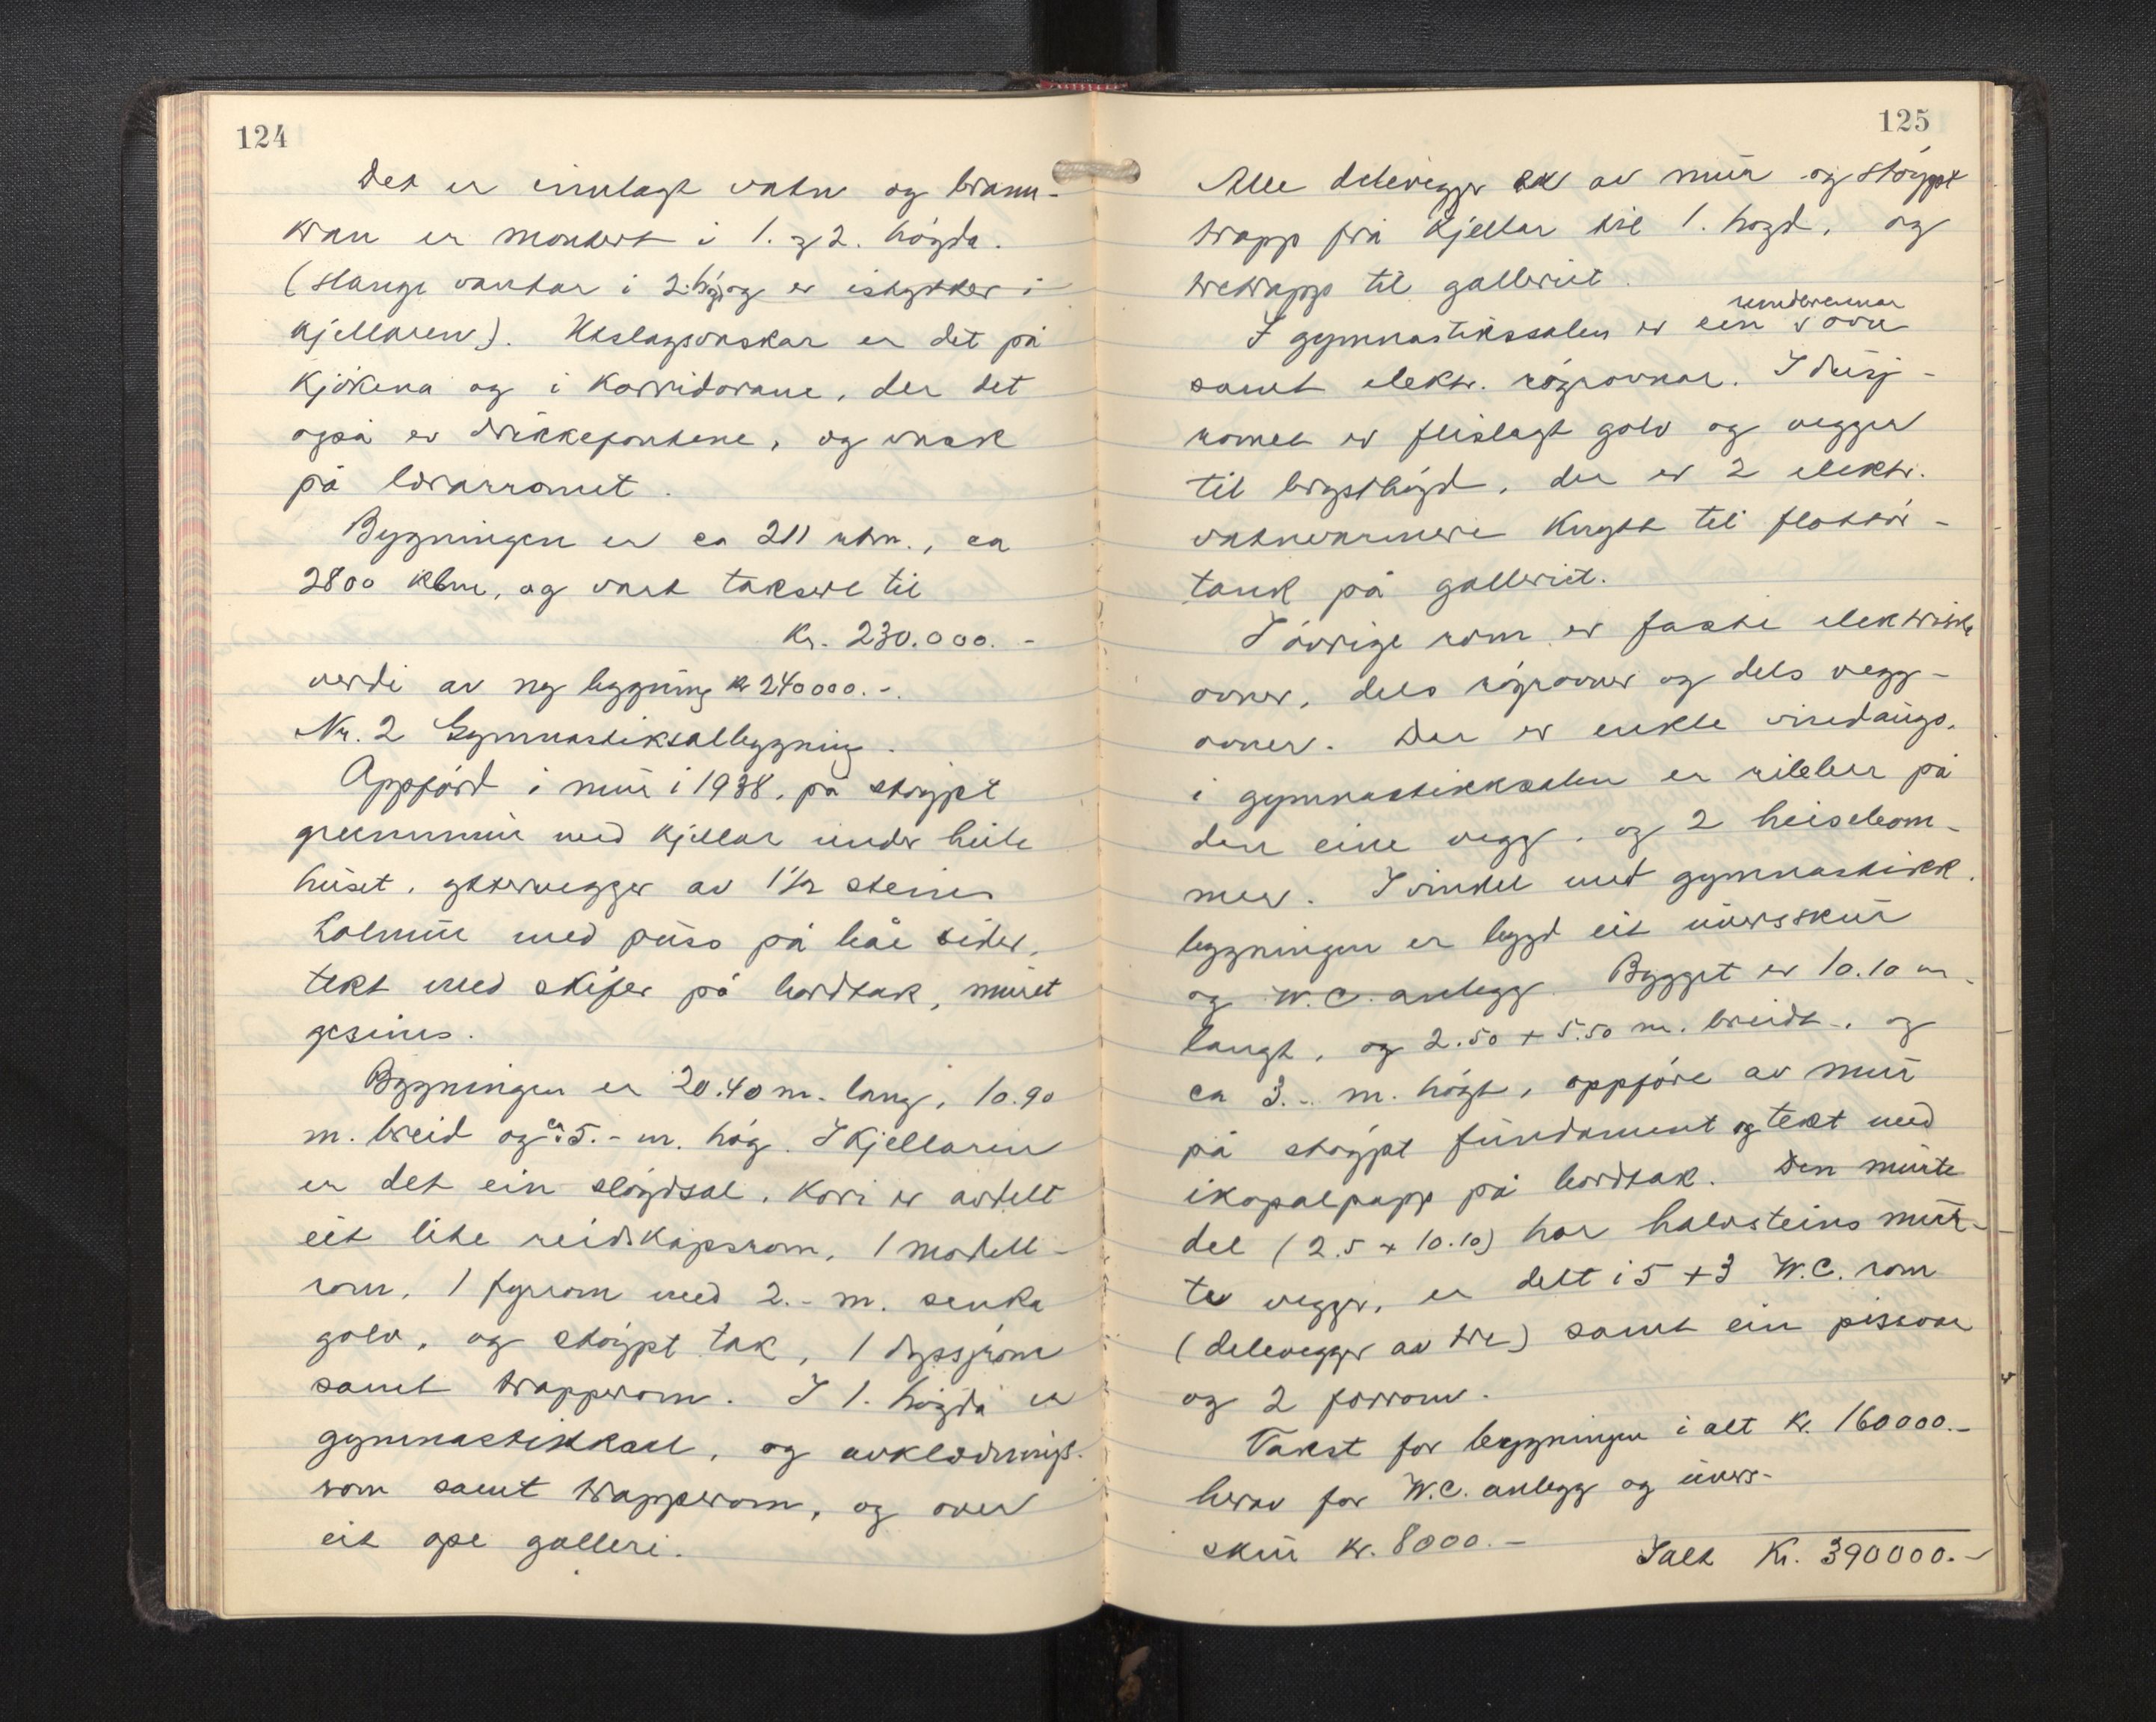 124
Det er innlagt vatn og brann-
kran er montert i 1. og 2. høgda.
(Slange vantar i 2. høgd og er istykker i
kjellaren). Utslagsvaskar er det på
kjøkena og i korridorane, der det
også er drikkefontene, og vask
på lærarromet.
Bygningen er ca 211 kvm., ca
2800 kbm, og vart taksert til
Kr. 230.000.-
verdi av ny bygning kr 240000.-.
Nr. 2 Gymnastiksalbygning.
Oppførd i mur i 1938, på støypt
grunnmur med kjellar under heile
huset, yttervegger av 1 1/2 steins
holmur med puss på båe sider,
tekt med skifer på bordtak, muret
gesims.
Bygningen er 20.40 m. lang, 10.90
m. breid og ca 5.- m. høg. I kjellaren
er det ein sløydsal, kori er avdelt
eit lite reidskapsrom, 1 modell-
rom, 1 fyrrom med 2.- m. senka
golv, og støypt tak, 1 dyssjrom
samt trapperom. I 1. høgda er
gymnastikksal, og avklædnings-
rom samt trapperom, og over
eit ope galleri.
125
Alle delevegger er av mur og støypt
trapp frå kjellar til 1. høgd, og
tretrapp til galleriet.
I gymnastikssalen er ein v ovn
samt elektr. røyrovnar. I dusj-
romet er flislagt golv og vegger
til brysthøgd, der er 2 elektr.
vatnvarmere knytt til flottør-
tank på galleriet.
I øvrige rom er faste elektriske
ovner, dels røyrovner og dels vegg-
ovner. Der er enkle vindaugo.
i gymnastikksalen er ribber på
den eine vegg, og 2 heisebom-
mer. I vinkel med gymnastikk-
bygningen er bygd eit uversskur
og W.C. anlegg. Bygget er 10.10 m.
langt, og 2.50 + 5.50 m. breidt, og
ca 3.- m. høgt, oppføre av mur
på støypt fundament og tekt med
ikopalpapp på bordtak. Den murte
del (2.5 x 10.10) har halvsteins mur-
te vegger, er delt i 5 + 3 W.C. rom
(delevegger av tre) samt ein pissoar
og 2 forrom.
Takst for bygningen i alt kr. 160000.-
herav for W.C. anlegg og uvers-
skur kr. 8000.-
Ialt Kr. 390000.-